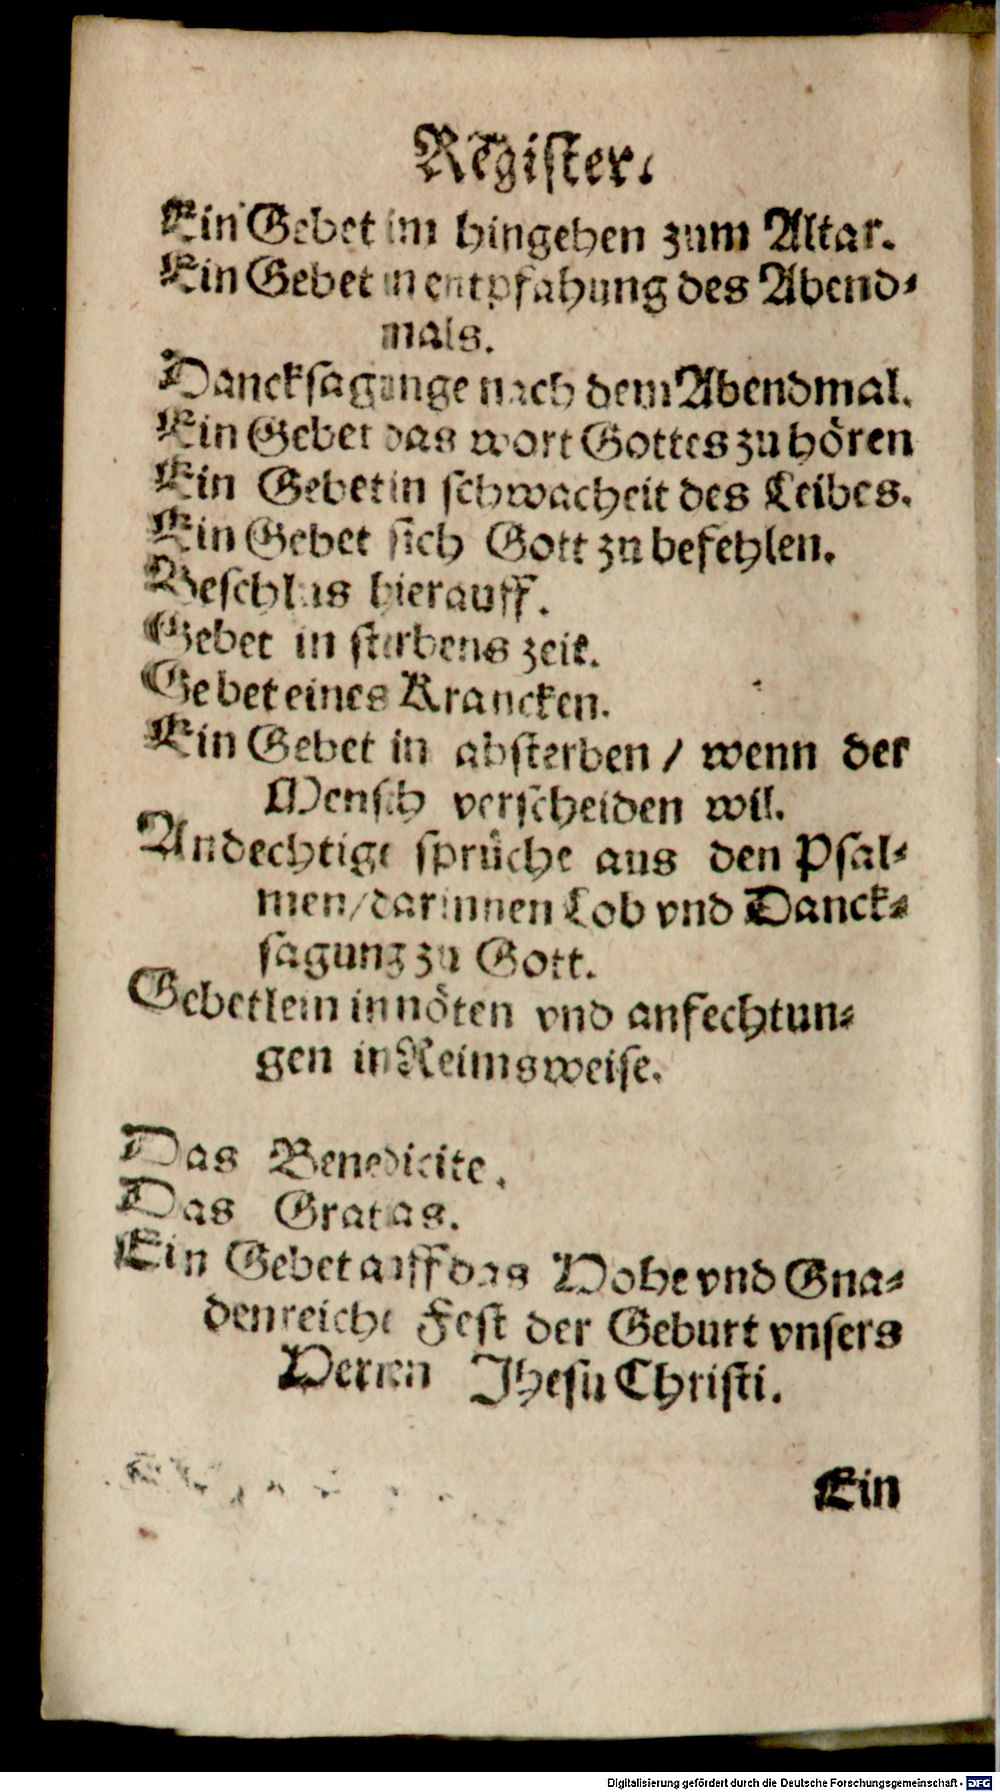 Register.
Ein Gebet im hingehen zum Altar.
Ein Gebet in entpfahung des Abend⸗
mals.
Dancksagunge nach dem Abendmal.
Ein Gebet das wort Gottes zu hören
Ein Gebet in schwacheit des Leibes.
Ein Gebet sich Gott zu befehlen.
Beschlus hierauff.
Gebet in sterbens zeit.
Gebet eines Krancken.
Ein Gebet in absterben / wenn der
Mensch verscheiden wil.
Andechtige sprüche aus den Psal⸗
men / darinnen Lob vnd Danck⸗
sagung zu Gott.
Gebetlein in nöten vnd anfechtun⸗
gen in Reimsweise.
Das Benedicite.
Das Gratias.
Ein Gebet auff das Hohe vnd Gna⸗
denreiche Fest der Geburt vnsers
Herren Jhesu Christi.
Ein
Digitalisierung gefördert durch die Deutsche Forschungsgemeinschaft - DFG